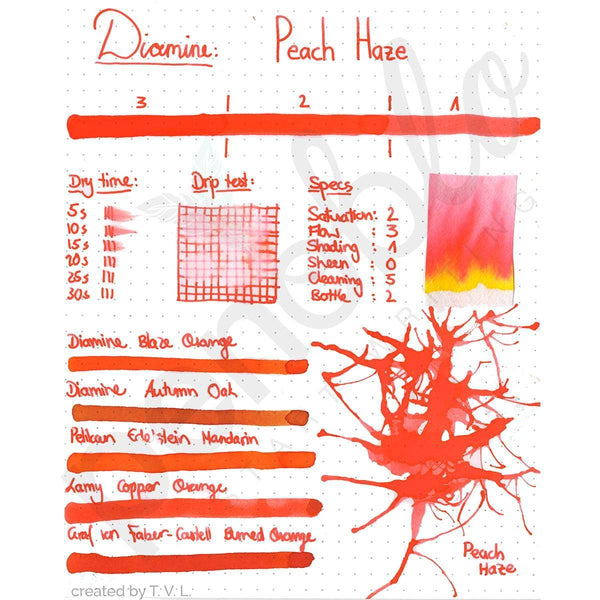 Diamine: Peach Haze
3 | 2 | 1
Dry time:
5s
10s
15s
20s
25s
30s
Drip test:
Specs
Saturation: 2
Flow : 3
Shading : 1
Sheen : 0
Cleaning : 5
Bottle : 2
Diamine Blaze Orange
Diamine Autumn Oak
Pelikan Edelstein Mandarin
Lamy Copper Orange
Graf von Faber-Castell Burned Orange
Peach
Haze
created by T.V.L.